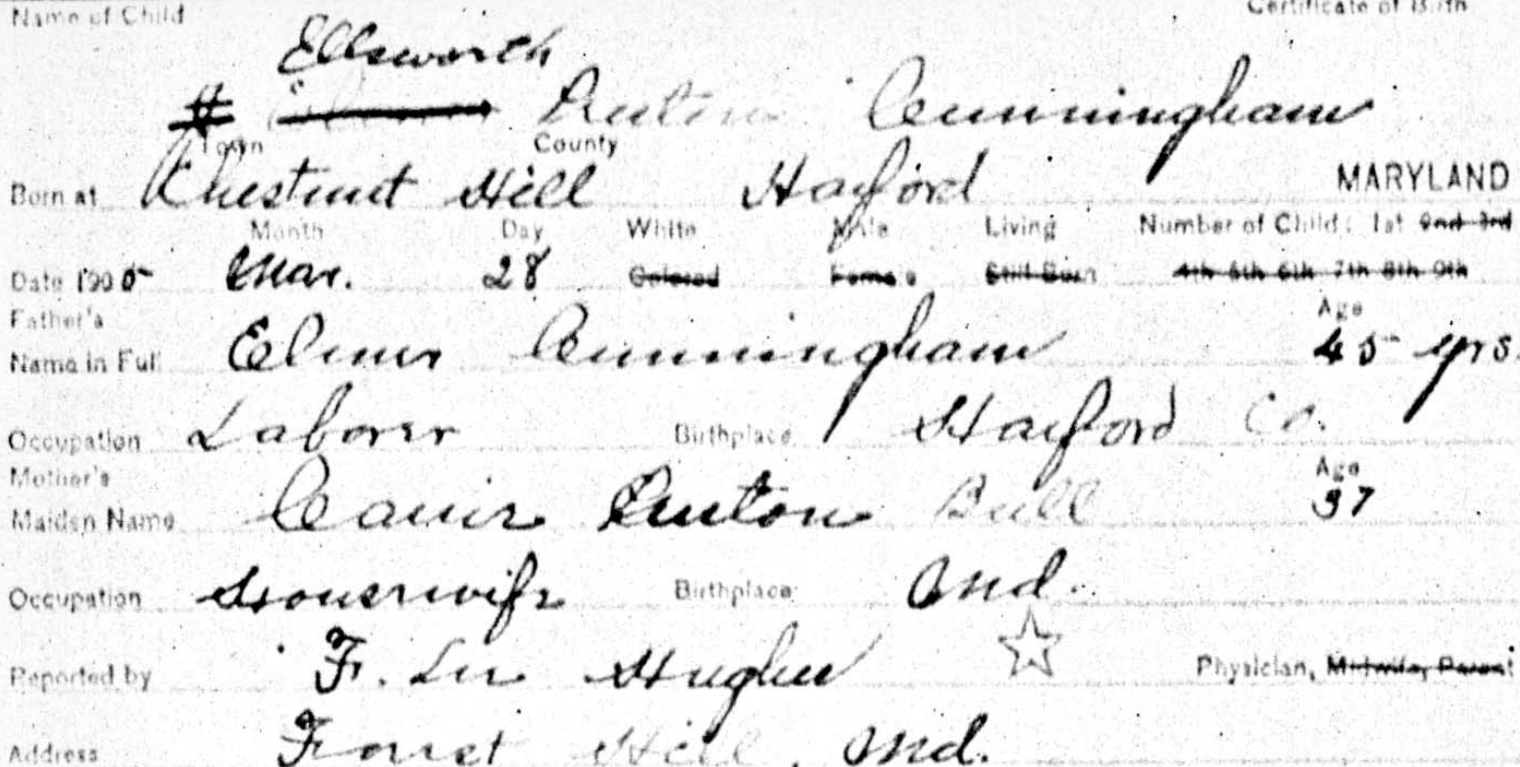 Name of Child Certificate of Birth
Ellsworth
# Cunningham
Town County
Born at Chestnut Hill Harford MARYLAND
Month Day White Male Living Number of Child: 1st 2nd 3rd
Date 1905 Mar. 28 Colored Female Still Born 4th 5th 6th 7th 8th 9th
Father's Age
Name in Full Elmer Cunningham 45 yrs.
Occupation Laborer Birthplace Harford Co.
Mother's Age
Maiden Name Bull 37
Occupation Housewife Birthplace Md.
Reported by F. Lee Hughes Physician, Midwife, Parent
Address Forest Hill, Md.